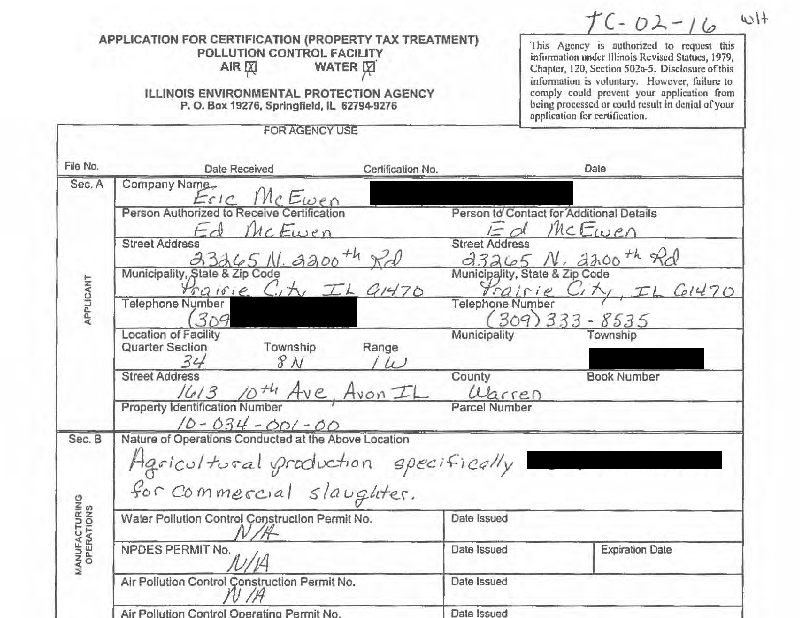 TC-02-16 WH
APPLICATION FOR CERTIFICATION (PROPERTY TAX TREATMENT)
POLLUTION CONTROL FACILITY
AIR X WATER X
ILLINOIS ENVIRONMENTAL PROTECTION AGENCY
P. O. Box 19276, Springfield, IL 62794-9276
This Agency is authorized to request this
information under Illinois Revised Statues, 1979,
Chapter, 120, Section 502a-5. Disclosure of this
information is voluntary. However, failure to
comply could prevent your application from
being processed or could result in denial of your
application for certification.
FOR AGENCY USE
File No. Date Received Certification No. Date
Sec. A Company Name
Eric McEwen
Person Authorized to Receive Certification Person to Contact for Additional Details
Ed McEwen Ed McEwen
Street Address Street Address
23265 N. 2200th Rd 23265 N. 2200th Rd
Municipality, State & Zip Code Municipality, State & Zip Code
Prairie City IL 61470 Prairie City, IL 61470
Telephone Number Telephone Number
(309 (309) 333-8535
APPLICANT
Location of Facility Municipality Township
Quarter Section Township Range
34 8N 1W
Street Address County Book Number
1613 10th Ave, Avon IL Warren
Property Identification Number Parcel Number
10-034-001-00
Sec. B Nature of Operations Conducted at the Above Location
Agricultural production specifically
for commercial slaughter.
MANUFACTURING
OPERATIONS
Water Pollution Control Construction Permit No. Date Issued
N/A
NPDES PERMIT No. Date Issued Expiration Date
N/A
Air Pollution Control Construction Permit No. Date Issued
N/A
Air Pollution Control Operating Permit No. Date Issued